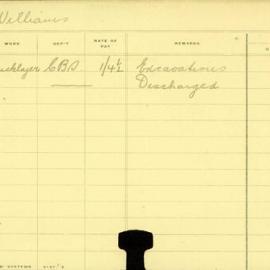 Williams
WORK DEP'T RATE OF PAY REMARKS
ucklayer C.B.D. 1/4½ Excavations
Discharged
SYSTEMS